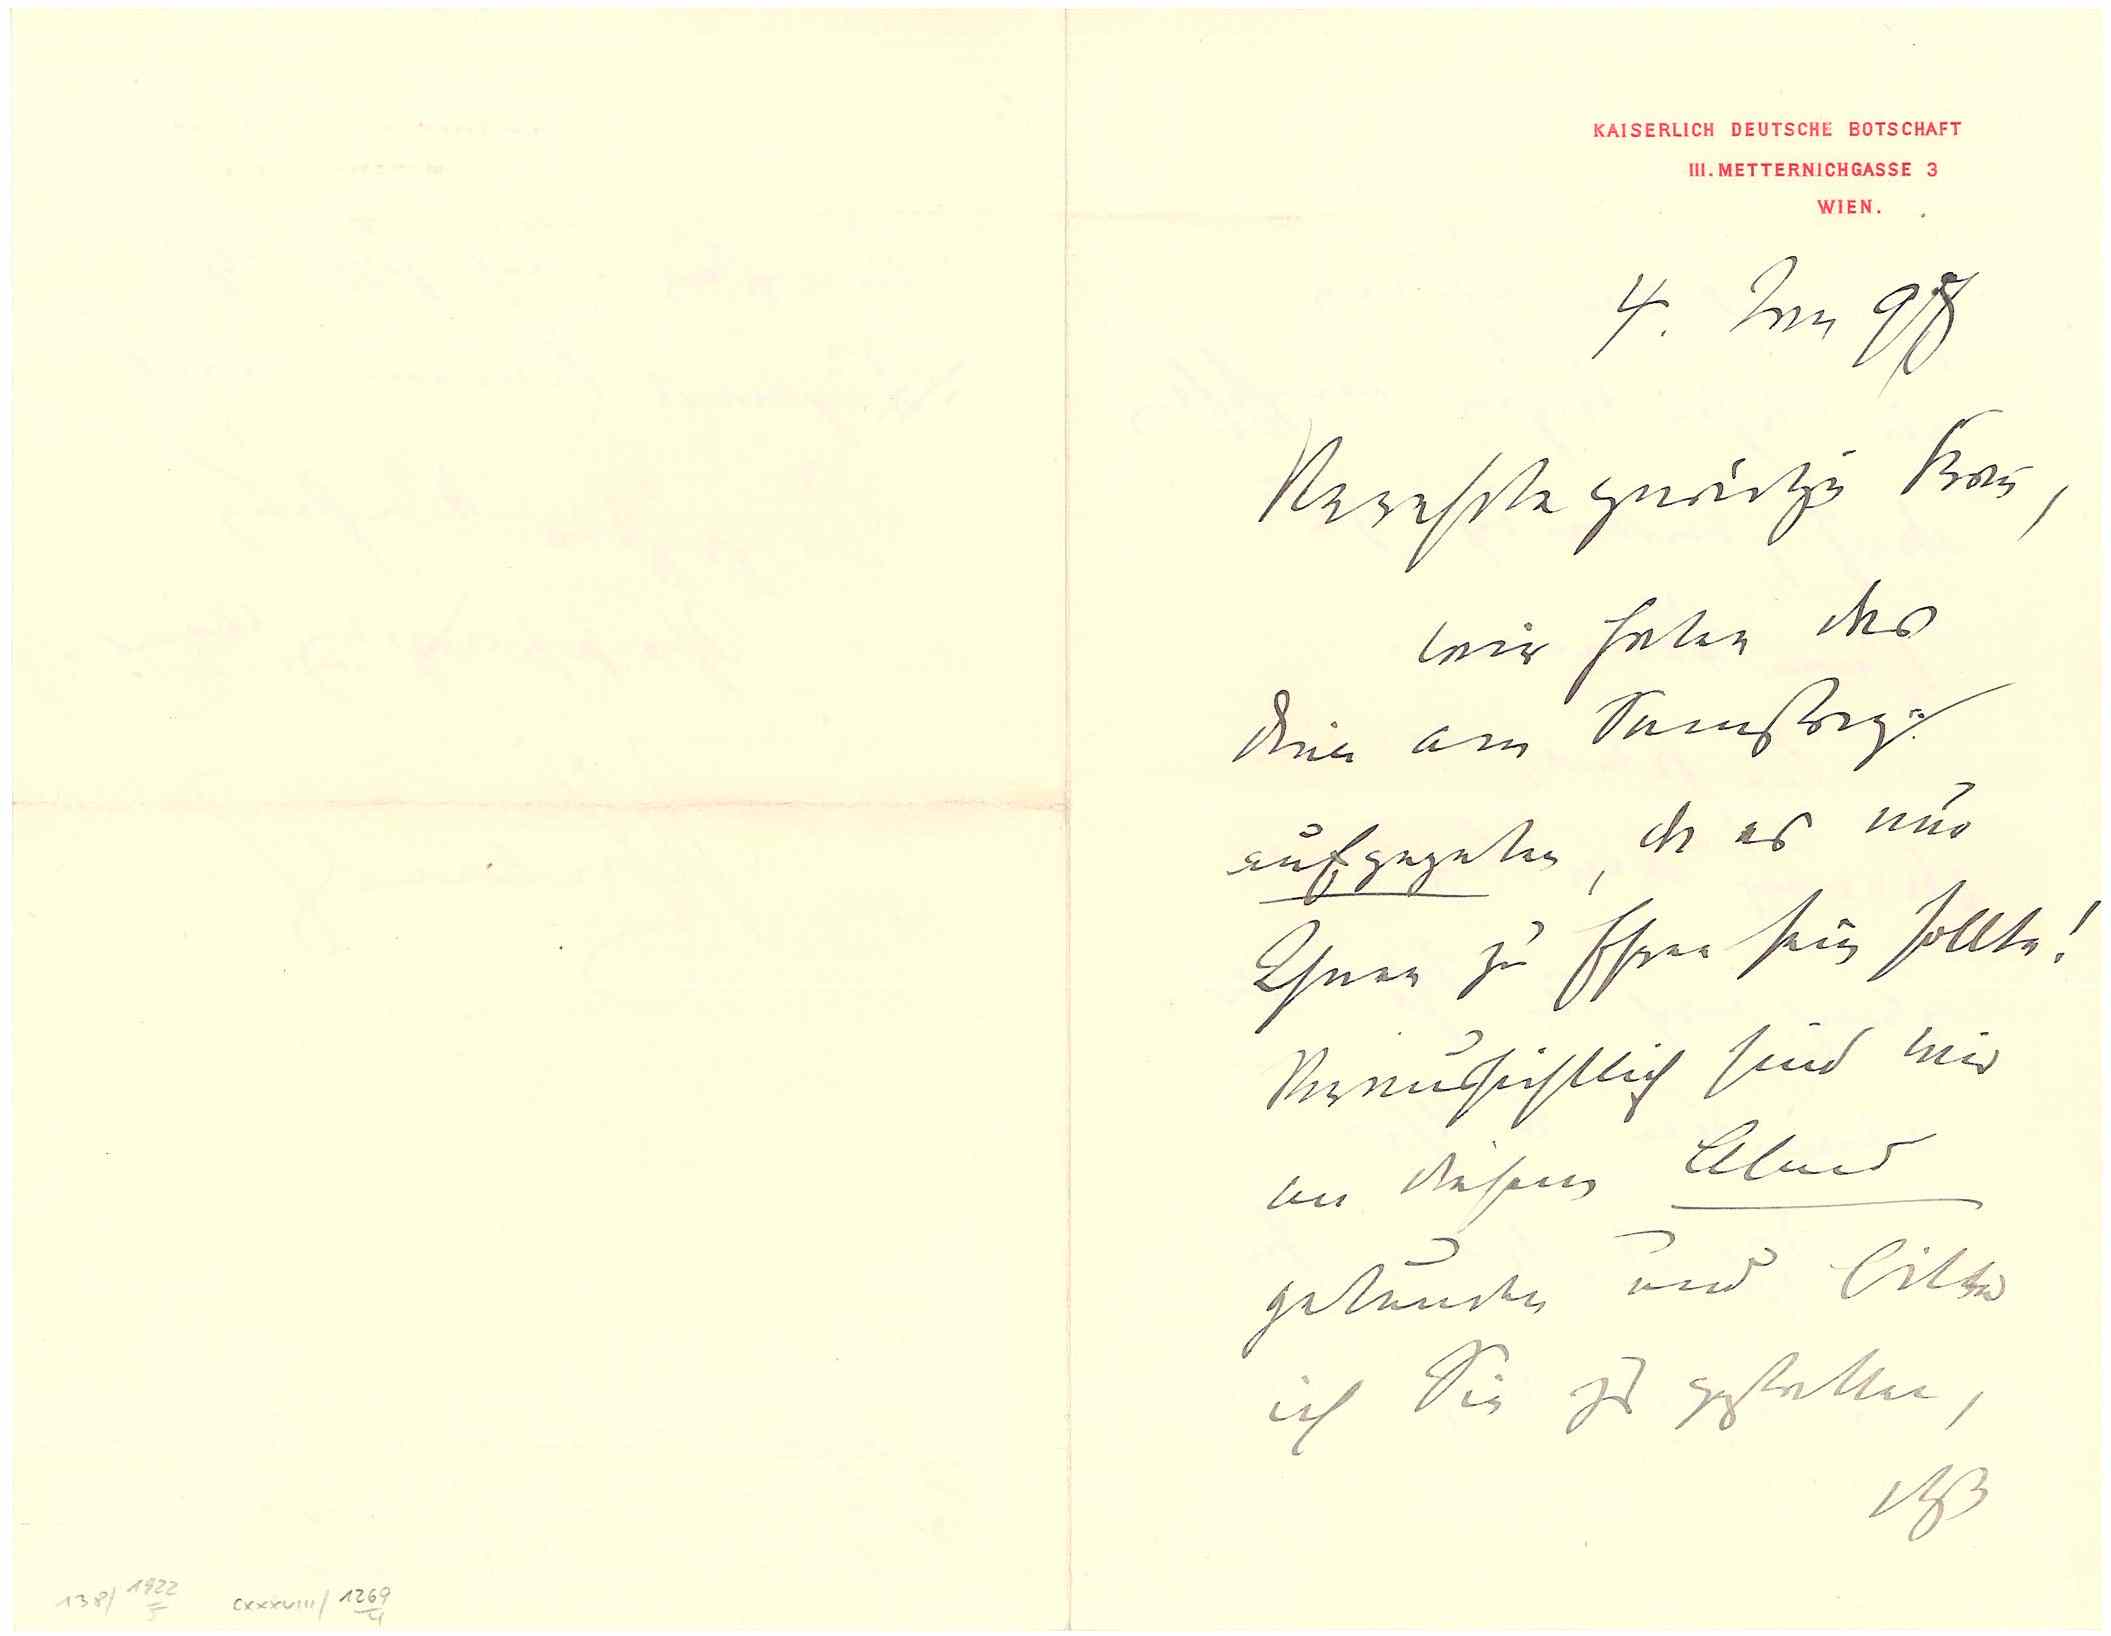 KAISERLICH DEUTSCHE BOTSCHAFT
III. METTERNICHGASSE 3
WIEN.
4. Jan 98
Verehrte gnädige Frau,
wir haben das
Diner am Samstag
aufgegeben, da es nur
Ihnen zu Ehren sein sollte!
Voraussichtlich sind wir
an diesem Abend
gebunden und bitte
ich Sie zu gestatten,
daß
138/ 1922/5 CXXXVIII/ 1269/4